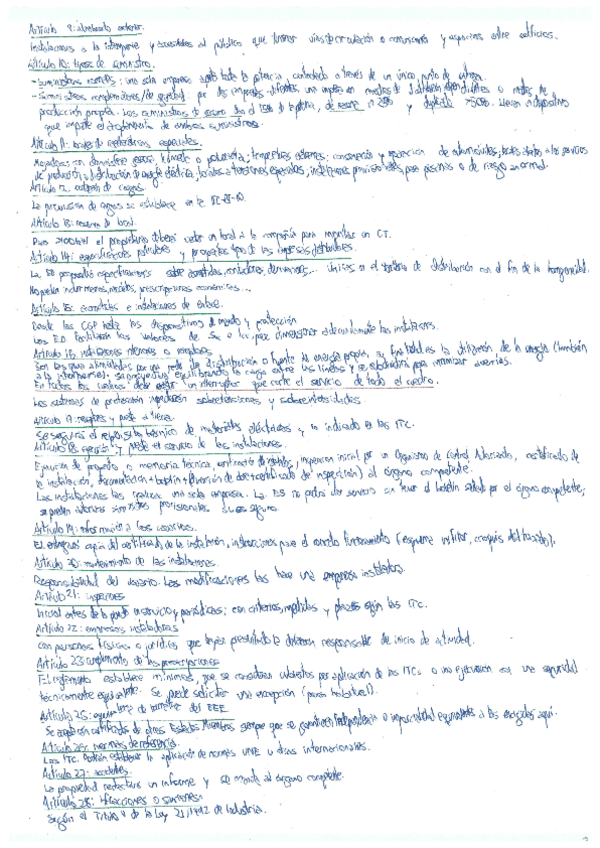 Artículo 9: alumbrado exterior.
Instalaciones a la intemperie y accesibles al público que tienen vías de circulación o comunicaria y espacios entre edificios.
Artículo 10: tipos de suministro.
- Suministros normales: una sola empresa toda la potencia contratada a través de un único punto de entrega.
- Suministros complementarios/de seguridad: por dos empresas diferentes, una empresa con medios de distribución independientes o medios de
producción propia. Los suministros de socorro dan el 15% de la potencia, de reserva un 25% y duplicado >50%. Llevan un dispositivo
que impide el acoplamiento de ambos suministros.
Artículo 11: locales de características especiales.
Mojados con atmósfera húmedo o polvoriento, temperaturas extremas; conservación y reparación de automóviles, locales afectos a los servicios
de producción o distribución de energía eléctrica, locales a tensiones especiales, instalaciones provisionales, para piscinas o de riesgo anormal.
Artículo 12: de cargas.
La previsión de cargas se establece en la ITC-BT-10.
Artículo 13: reserva de local.
Para >100kW el propietario deberá ceder un local a la compañía para montar un CT.
Artículo 14: especificaciones particulares y proyectos tipo de las empresas distribuidoras.
La ED propondrá especificaciones sobre acometidas, contadores, derivaciones... únicas en el territorio de distribución con el fin de la homogeneidad.
No pueden incluir marcas, modelos, prescripciones económicas...
Artículo 15: acometidas e instalaciones de enlace.
Desde las CGP hasta los dispositivos de mando y protección
Las ED facilitarán los valores de para dimensionar adecuadamente las instalaciones.
Artículo 16: instalaciones internas o receptoras.
Son las que alimentadas por una red de distribución o fuente de energía propia, su finalidad es la utilización de la energía (también
a la intemperie). Se procurará equilibrando la carga entre las líneas y se subdividirá para minimizar averías.
En todos los cuadros debe existir un interruptor que corte el servicio de todo el cuadro.
Los sistemas de protección impedirán sobretensiones y sobreintensidades.
Artículo 17: receptores y puesta a tierra.
Se seguirá el requisito técnico de materiales eléctricos y lo indicado en las ITC.
Artículo 18: ejecución y puesta en servicio de las instalaciones.
Ejecución de proyecto o memoria técnica, verificación, inspección inicial por un Organismo de Control Autorizado, certificado de
la instalación, documentación al órgano competente.
Las instalaciones las realiza una sola empresa. La ED no podrá dar servicio sin tener el boletín sellado por el órgano competente;
se pueden autorizar suministros provisionales si es seguro.
Artículo 19: información a los usuarios.
El entregará copia del certificado de la instalación, instrucciones para el correcto funcionamiento (esquema unifilar, croquis del trazado).
Artículo 20: mantenimiento de las instalaciones.
Responsabilidad del usuario. Las modificaciones las hace una empresa instaladora.
Artículo 21: inspecciones
Inicial antes de la puesta en servicio y periódicas; con criterios, medidas y plazos según las ITC.
Artículo 22: empresas instaladoras
Son personas físicas o jurídicas que hayan presentado la declaración responsable de inicio de actividad.
Artículo 23: cumplimiento de las prescripciones
El reglamento establece mínimos, que se consideran cubiertos por aplicación de las ITCs o una ejecución con una seguridad
técnicamente equivalente. Se puede solicitar una excepción (previa).
Artículo 25: equivalencia de normativa del EEE.
Se aceptarán certificados de otros Estados Miembros siempre que se garanticen independencia e imparcialidad equivalentes a las exigidas aquí.
Artículo 26: normas de referencia.
Las ITC podrán establecer la aplicación de normas UNE u otras internacionales.
Artículo 27: accidentes.
La propiedad redactará un informe y se manda al órgano competente.
Artículo 28: infracciones o sanciones.
Según el Título V de la Ley 21/1992 de Industria.